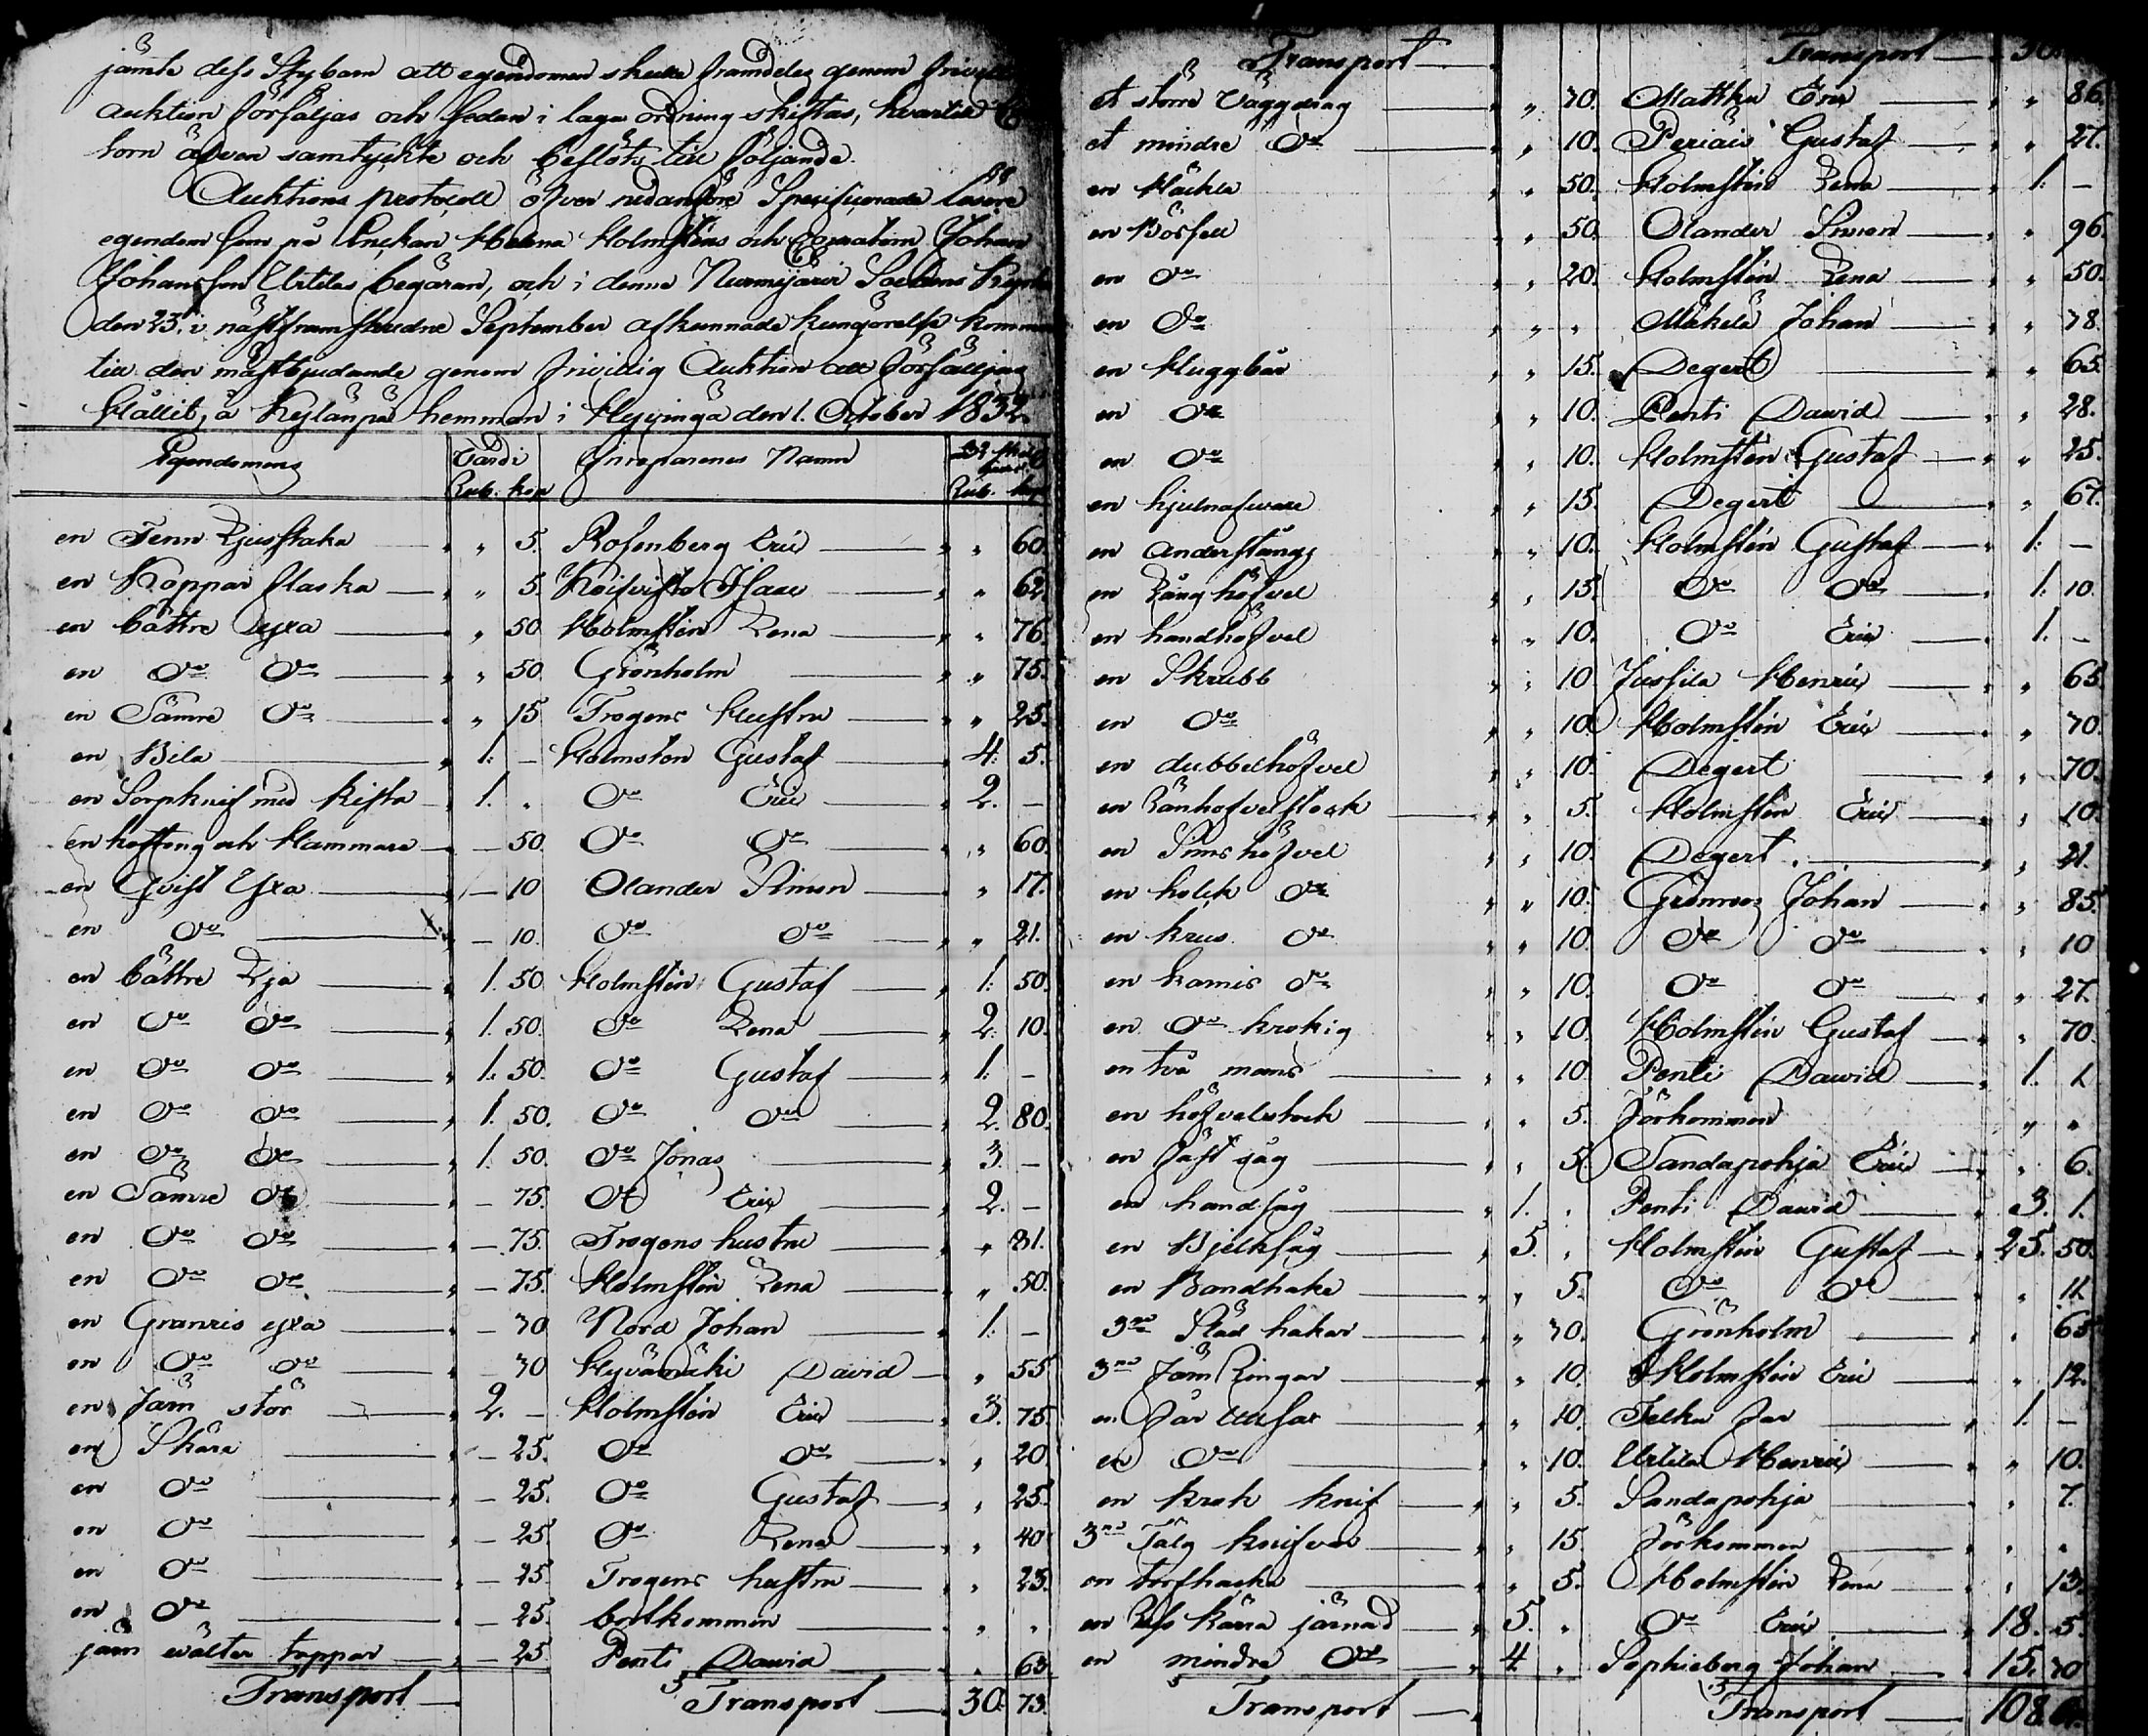 jämte dess Styfbarn att egendomen skulle framdeles genom
auktion försäljas och sedan i laga ordning skiftas, hvartill
torn äfven samtyckte och beslöts till följande
Auktions protocoll öfver nedanföre Specificerade lösöre
egendom som på Enckan Helena Holmsténs och Johan
Johansson Urtilas begäran, och i denna Nurmijärvi Sockens Kyrka
den 23. i nästframskredne September afkunnade kungörelse komma
till den mästbjudande genom frivillig Auktion att försälljas
hållit, å Kylänpä hemman i Hyvingä den 1. October 1832.
Egendomens Värde Inroparenes Namn
Rub. kop Rub. kop
en Tenn Ljusstaka " 5. Rosenberg Eric " 60.
en Koppar flaska " 5. Koifvisto Isaac " 62.
en bättre yxa " 50 Holmstén Lena " 76.
en Do Do " 50. Grönholm " 75.
en Sämre Do " 15 Trogens Hustru " 25.
en Bila 1. - Holmsten Gustaf 4. 5.
en Sorpknif med kista 1. " Do Eric 2. -
en hoftong och Hammare - 50. Do Do " 60.
en Qvist Yxa - 10 Olander Simon " 17.
en Do - 10. Do Do " 21.
en bättre Lja 1. 50. Holmstén Gustaf 1. 50.
en Do Do 1. 50. Do Lena 2. 10.
en Do Do 1. 50. Do Gustaf 1. -
en Do Do 1. 50. Do Do 2. 80.
en Do Do 1. 50. Do Jonas 3. -
en Sämre Do - 75. Do Eric 2. -
en Do Do - 75. Trogens hustru " 81.
en Do Do - 75. Holmstén Lena " 50.
en Granris yxa - 30 Nord Johan 1. -
en Do Do - 30 Hyvämäki David " 55
en Järn stör 2. - Holmstén Eric 3. 75.
en Skära - 25. Do Do " 20.
en Do - 25. Do Gustaf " 25.
en Do - 25. Do Lena " 40
en Do - 25. Trogens hustru " 25.
en Do - 25. bortkommen " "
järn wälter tappar - 25. Penti David " 63.
Transport Transport 30. 73.
Transport Transport 30
et större Väggdrag " 30. Mattku Eric " 86.
et mindre Do " 10. Periäis Gustaf " 27.
en Häckla " 50. Holmstén Lena 1. -
en Bösfell " 50. Olander Simon " 96.
en Do " 20. Holmstén Lena " 50.
en Do " " Mäkelä Johan " 38.
en Huggbår " 15. Degert " 65.
en Do " 10. Penti David " 28.
en Do " 10. Holmstén Gustaf " 25.
en hjulnafware " 15. Degert " 67.
en Anderstångs " 10. Holmstén Gustaf 1. -
en Lång höfvel " 15. Do Do 1. 10.
en handhöfvel " 10. Do Eric 1. -
en Skrubb " 10 Jussila Henric " 65.
en Do " 10. Holmstén Eric " 70.
en dubbelhöfvel " 10. Degert " 70.
en Lånhöfvelstock " 5. Holmstén Eric " 10.
en Simshöfvel " 10. Degert " 21.
en holck Do " 10. Grönroos Johan " 85.
en krus Do " 10. Do Do " 10
en karnis Do " 10. Do Do " 27.
en Do krokig " 10. Holmstén Gustaf " 70.
en två mans " 10. Penti David 1. 1.
en höfvelstock " 5. Förkommen " "
en fäst såg " 5. Sandapohja Eric " 6.
en handsåg 1. " Penti David 3. 1.
en Bjelksåg 5. " Holmstén Gustaf 25. 50.
en Bandhake " 5. Do Do " 11.
3ne Släd hakar " 30. Grönholm " 65
3ne Järn Ringar " 10. Holmstén Eric " 12.
en får ullsax " 10. 1. -
en Do " 10. Urtila Henric " 10.
en krok knif " 5. Sandapohja " 7.
3ne Tälg knifvar " 15. Förkommen " "
en torfhacka " 5. Holmstén Lena " 13.
en kärra järnad 5. " Do Eric 18. 5.
en mindre Do 4. " Sophieberg Johan 15. 30
Transport Transport 108